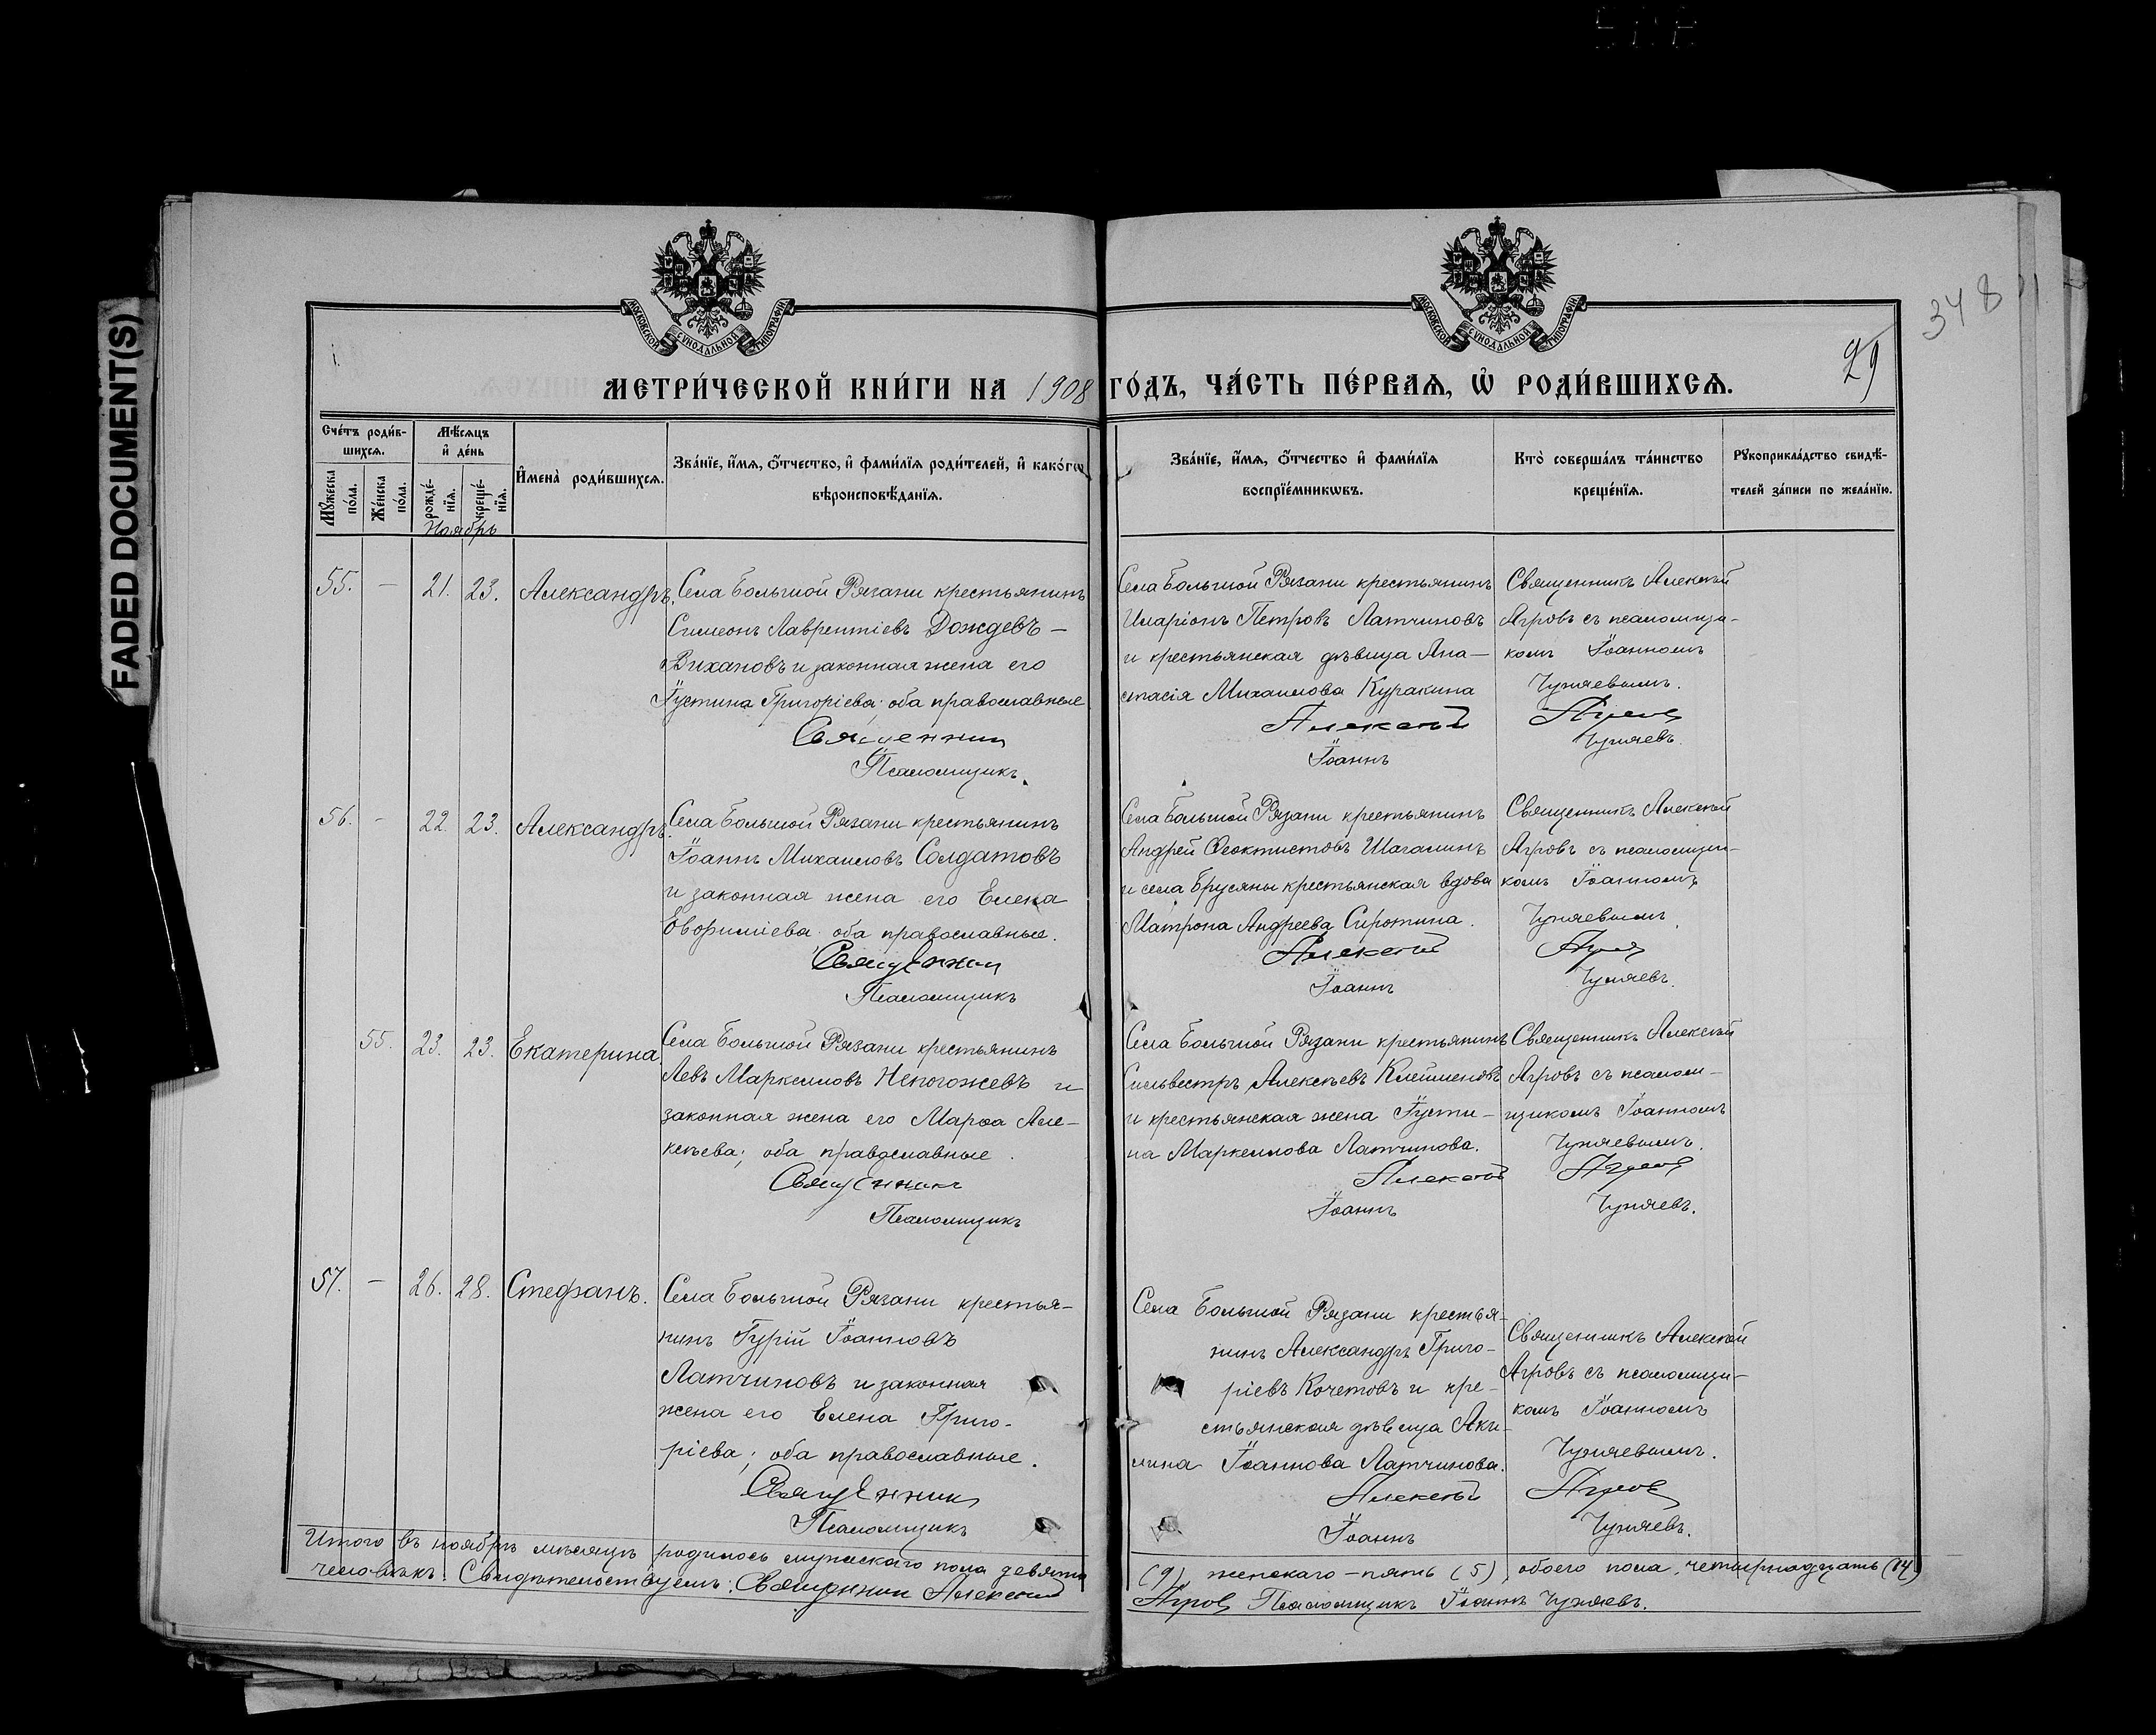 FADED DOCUMENT(S)
348
29
МОСКОВСКОЙ СѴНОДАЛЬНОЙ ТИПОГРАФІИ
МОСКОВСКОЙ СѴНОДАЛЬНОЙ ТИПОГРАФІИ
МЕТРИ́ЧЕСКОЙ КНИ́ГИ НА 1908 ГО́ДЪ, ЧА́СТЬ ПЕ́РВАѦ, Ѡ҆ РОДИ́ВШИХСѦ.
Сче́тъ роди́в-
шихсѧ.
Мꙋ́жеска по́ла.
Же́нска по́ла.
Мѣ́сѧцъ
и҆ де́нь
рожде́-
нїѧ.
креще́-
нїѧ.
Ноябрь
И҆мена̀ роди́вшихсѧ.
Зва́нїе, и҆́мѧ, ѻ҆́тчество, и҆ фами́лїѧ роди́телей, и҆ како́гѡ
вѣроисповѣ́данїѧ.
Зва́нїе, и҆́мѧ, ѻ҆́тчество и҆ фами́лїѧ
воспрїе́мникѡвъ.
Кто̀ соверша́лъ та́инство
креще́нїѧ.
Рꙋкоприкла́дство свидѣ́-
телей за́писи по жела́нїю.
55. — 21. 23. Александръ.
Села Большой Рязани крестьянинъ
Симеонъ Лаврентіевъ Дождевъ –
Вихановъ и законная жена его
Іустина Григоріева; оба православные
Священникъ
Псаломщикъ
Села Большой Рязани крестьянинъ
Иларіонъ Петровъ Латчиновъ
и крестьянская дѣвица Ана-
стасія Михаилова Куракина
Алексѣй
Іоаннъ
Священникъ Алексѣй
Агровъ съ псаломщи-
комъ Іоанномъ
Чуняевымъ.
Агровъ
Чуняевъ.
56. - 22. 23. Александръ.
Села Большой Рязани крестьянинъ
Іоаннъ Михаиловъ Солдатовъ
и законная жена его Елена
Евфиміева; оба православные.
Священникъ
Псаломщикъ
Села Большой Рязани крестьянинъ
Андрей Ѳеоктистовъ Шагалинъ
и села Брусяны крестьянская вдова
Матрона Андреева Сиротина.
Алексѣй
Іоаннъ
Священникъ Алексѣй
Агровъ съ псаломщи-
комъ Іоанномъ
Чуняевымъ.
Агровъ
Чуняевъ.
55. 23. 23. Екатерина
Села Большой Рязани крестьянинъ
Левъ Маркелловъ Непогожевъ и
законная жена его Марѳа Але-
ксѣева; оба православные.
Священникъ
Псаломщикъ
Села Большой Рязани крестьянинъ
Сильвестръ Алексѣевъ Клейменовъ
и крестьянская жена Іусти-
на Маркеллова Латчинова.
Алексѣй
Іоаннъ
Священникъ Алексѣй
Агровъ съ псалом-
щикомъ Іоанномъ
Чуняевымъ.
Агровъ
Чуняевъ.
57. — 26. 28. Стефанъ.
Села Большой Рязани крестья-
нинъ Гурій Іоанновъ
Латчиновъ и законная
жена его Елена Григо-
ріева; оба православные.
Священникъ
Псаломщикъ
Села Большой Рязани крестья-
нинъ Александръ Григо-
ріевъ Кочетовъ и кре-
стьянская дѣвица Аки-
лина Іоаннова Латчинова.
Алексѣй
Іоаннъ
Священникъ Алексѣй
Агровъ съ псаломщи-
комъ Іоанномъ
Чуняевымъ.
Агровъ
Чуняевъ.
Итого въ ноябрѣ мѣсяцѣ родилось мужскаго пола девять (9), женскаго – пять (5), обоего пола четырнадцать (14)
человѣкъ. Свидѣтельствуемъ: Священникъ Алексѣй Агровъ Псаломщикъ Іоаннъ Чуняевъ.